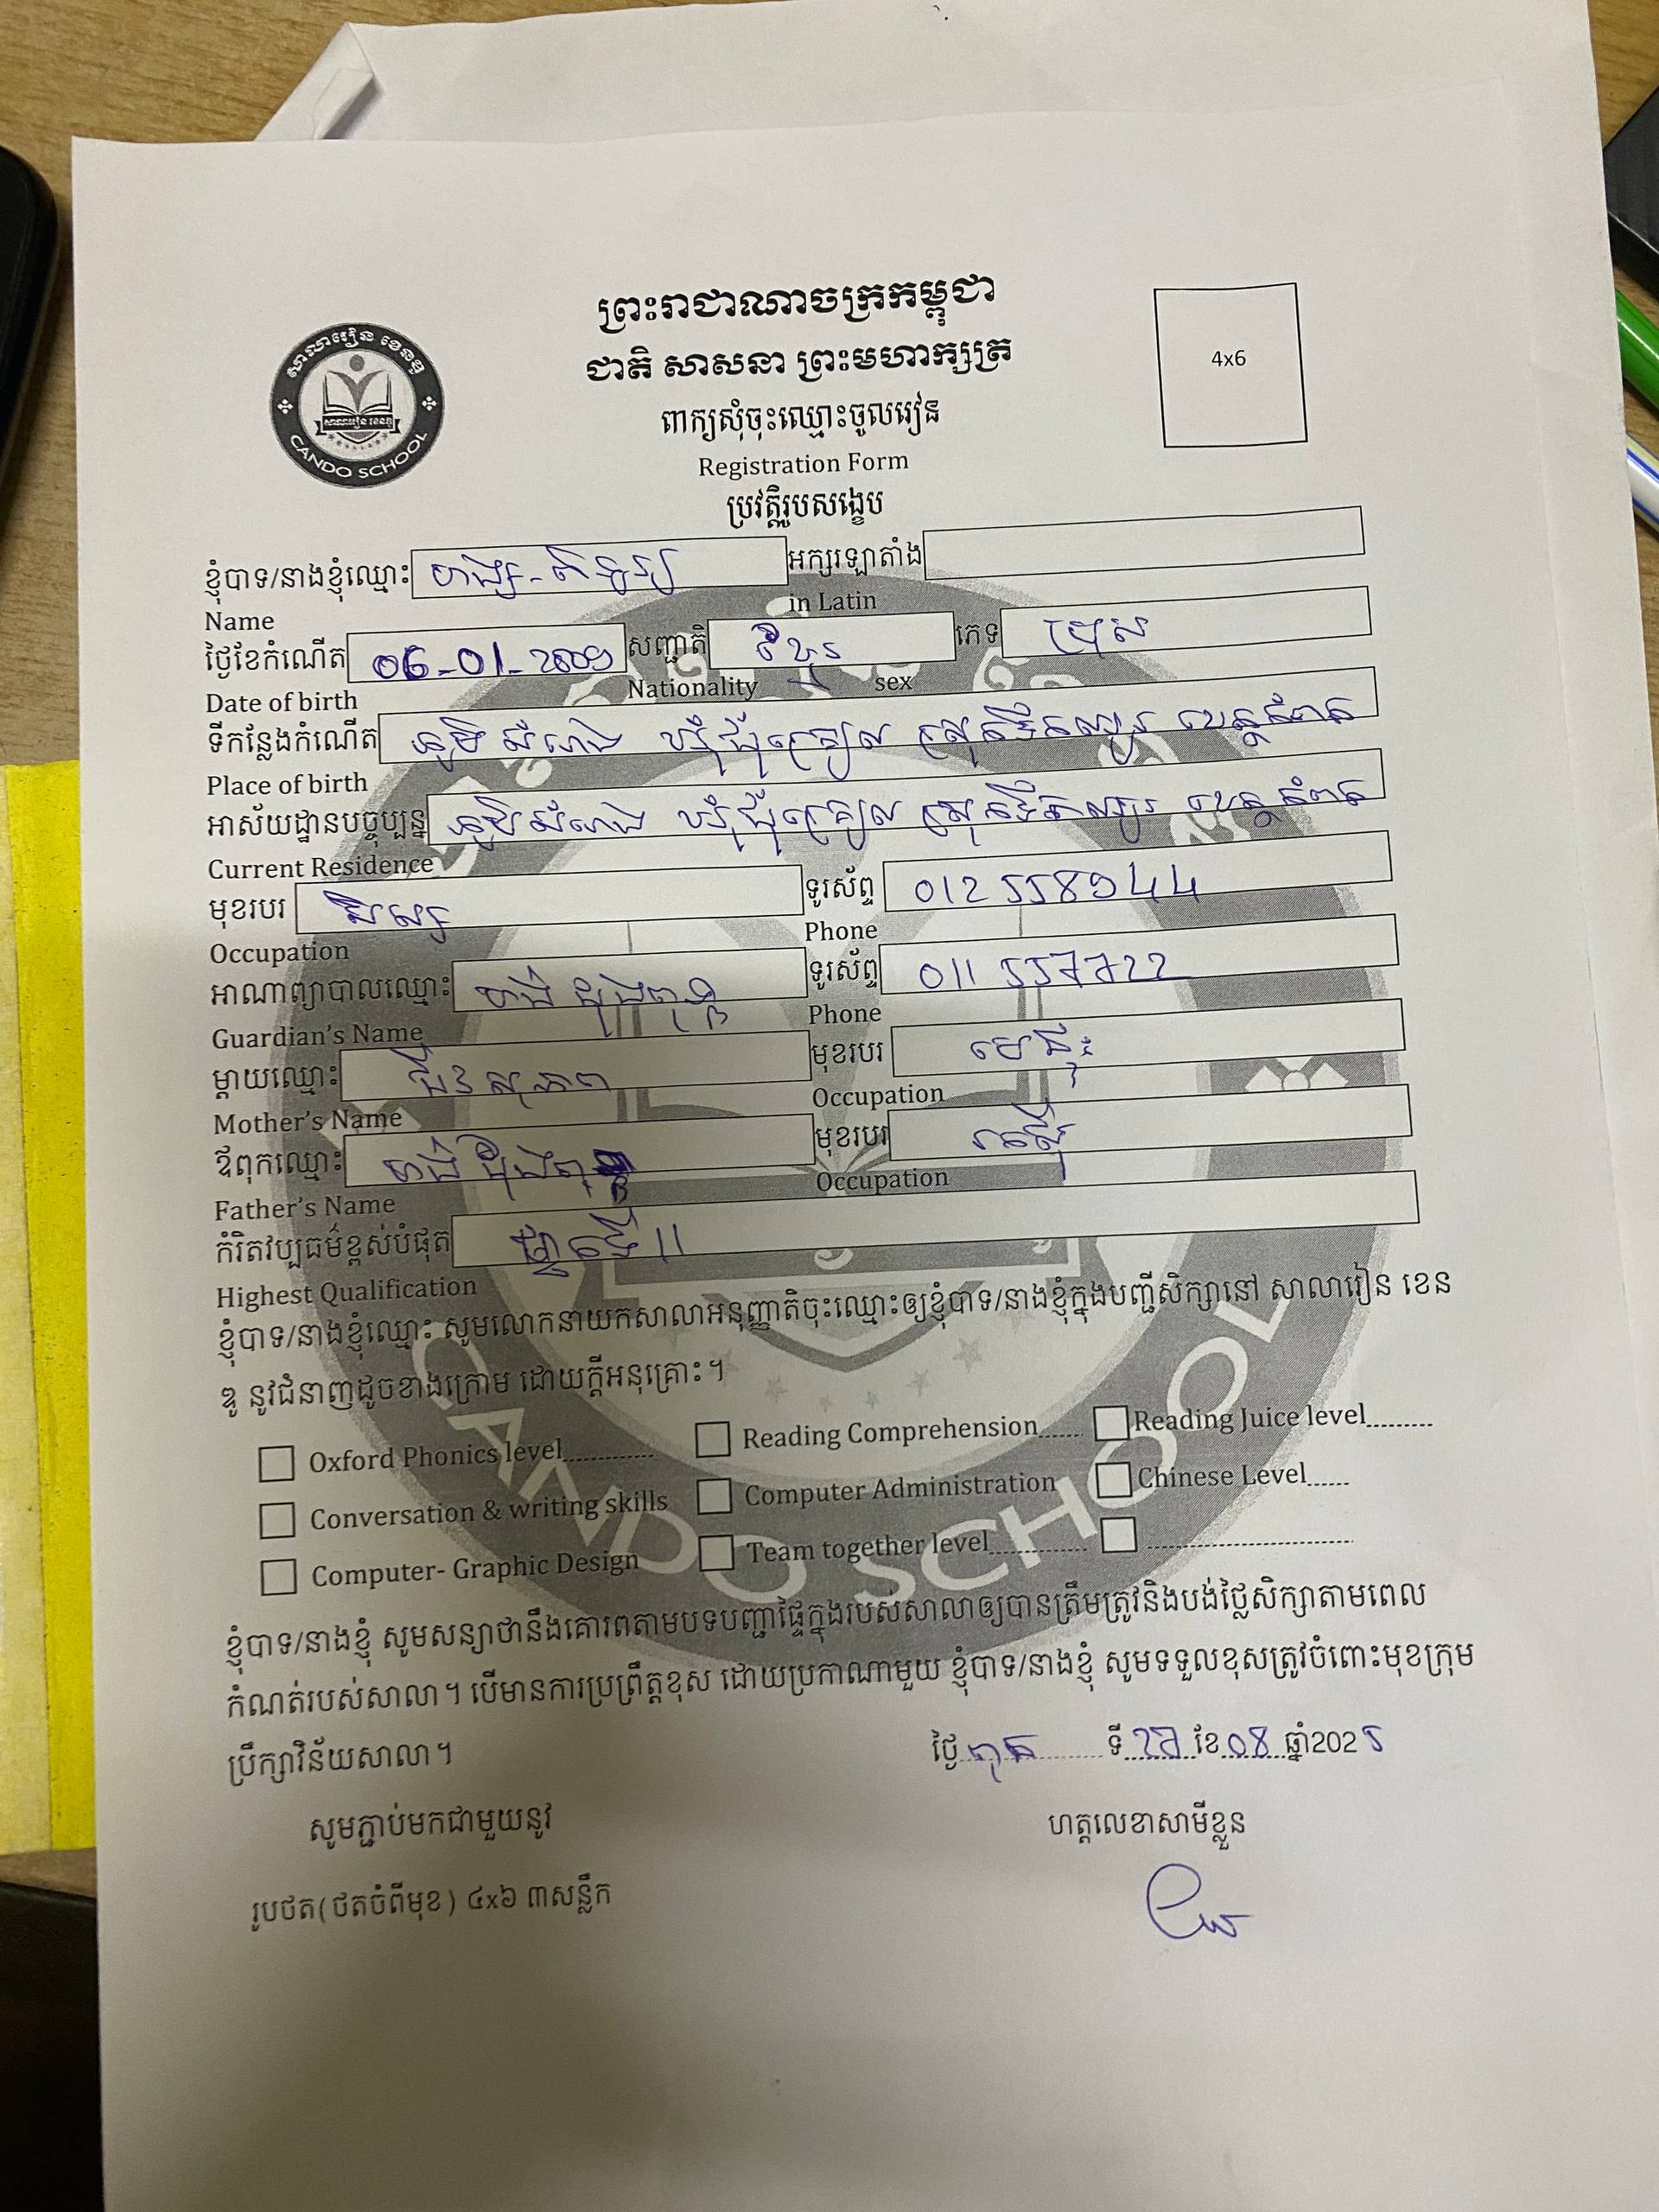 ព្រះរាជាណាចក្រកម្ពុជា
ជាតិ សាសនា ព្រះមហាក្សត្រ
ពាក្យសុំចុះឈ្មោះចូលរៀន
Registration Form
ប្រវត្តិរូបសង្ខេប
4x6
សាលារៀន ខេនឌូ
CANDO SCHOOL
ខ្ញុំបាទ/នាងខ្ញុំឈ្មោះ អក្សរឡាតាំង
Name in Latin
ថ្ងៃខែកំណើត 06-01-2009 សញ្ជាតិ ខ្មែរ ភេទ ប្រុស
Date of birth Nationality sex
ទីកន្លែងកំណើត ភូមិ សំរោង ឃុំជុំគ្រៀល ស្រុកទឹកឈូ ខេត្តកំពត
Place of birth
អាស័យដ្ឋានបច្ចុប្បន្ន ភូមិសំរោង ឃុំជុំគ្រៀល ស្រុកទឹកឈូ ខេត្តកំពត
Current Residence
មុខរបរ សិស្ស ទូរស័ព្ទ 012 558944
Occupation Phone
អាណាព្យាបាលឈ្មោះ ទូរស័ព្ទ 011 557722
Guardian's Name Phone
ម្តាយឈ្មោះ មុខរបរ មេផ្ទះ
Mother's Name Occupation
ឪពុកឈ្មោះ មុខរបរ
Father's Name Occupation
កំរិតវប្បធម៌ខ្ពស់បំផុត ថ្នាក់ទី 11
Highest Qualification
ខ្ញុំបាទ/នាងខ្ញុំឈ្មោះ សូមលោកនាយកសាលាអនុញ្ញាតិចុះឈ្មោះឲ្យខ្ញុំបាទ/នាងខ្ញុំក្នុងបញ្ជីសិក្សានៅ សាលារៀន ខេន
ឌូ នូវជំនាញដូចខាងក្រោម ដោយក្តីអនុគ្រោះ។
Oxford Phonics level.............. Reading Comprehension...... Reading Juice level.........
Conversation & writing skills Computer Administration Chinese Level......
Computer- Graphic Design Team together level.............. ..............................
ខ្ញុំបាទ/នាងខ្ញុំ សូមសន្យាថានឹងគោរពតាមបទបញ្ជាផ្ទៃក្នុងរបស់សាលាឲ្យបានត្រឹមត្រូវនិងបង់ថ្លៃសិក្សាតាមពេល
កំណត់របស់សាលា។ បើមានការប្រព្រឹត្តខុស ដោយប្រកាណាមួយ ខ្ញុំបាទ/នាងខ្ញុំ សូមទទួលខុសត្រូវចំពោះមុខក្រុម
ប្រឹក្សាវិន័យសាលា។
ថ្ងៃ ពុធ ទី 27 ខែ 08 ឆ្នាំ2025
សូមភ្ជាប់មកជាមួយនូវ ហត្ថលេខាសាមីខ្លួន
រូបថត(ថតចំពីមុខ) ៤x៦ ៣សន្លឹក